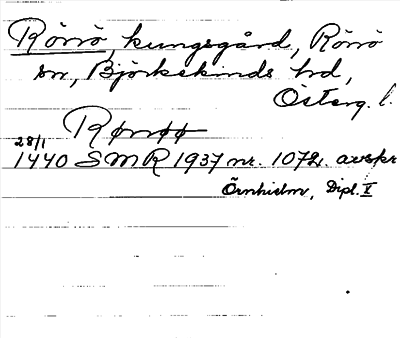 Rönö, kungsgård, Rönö
sn, Björkekinds hd,
Österg. l.
Rønøø
28/1
1440 SMR 1937 nr. 1072. avskr
Örnhielm, Dipl. V